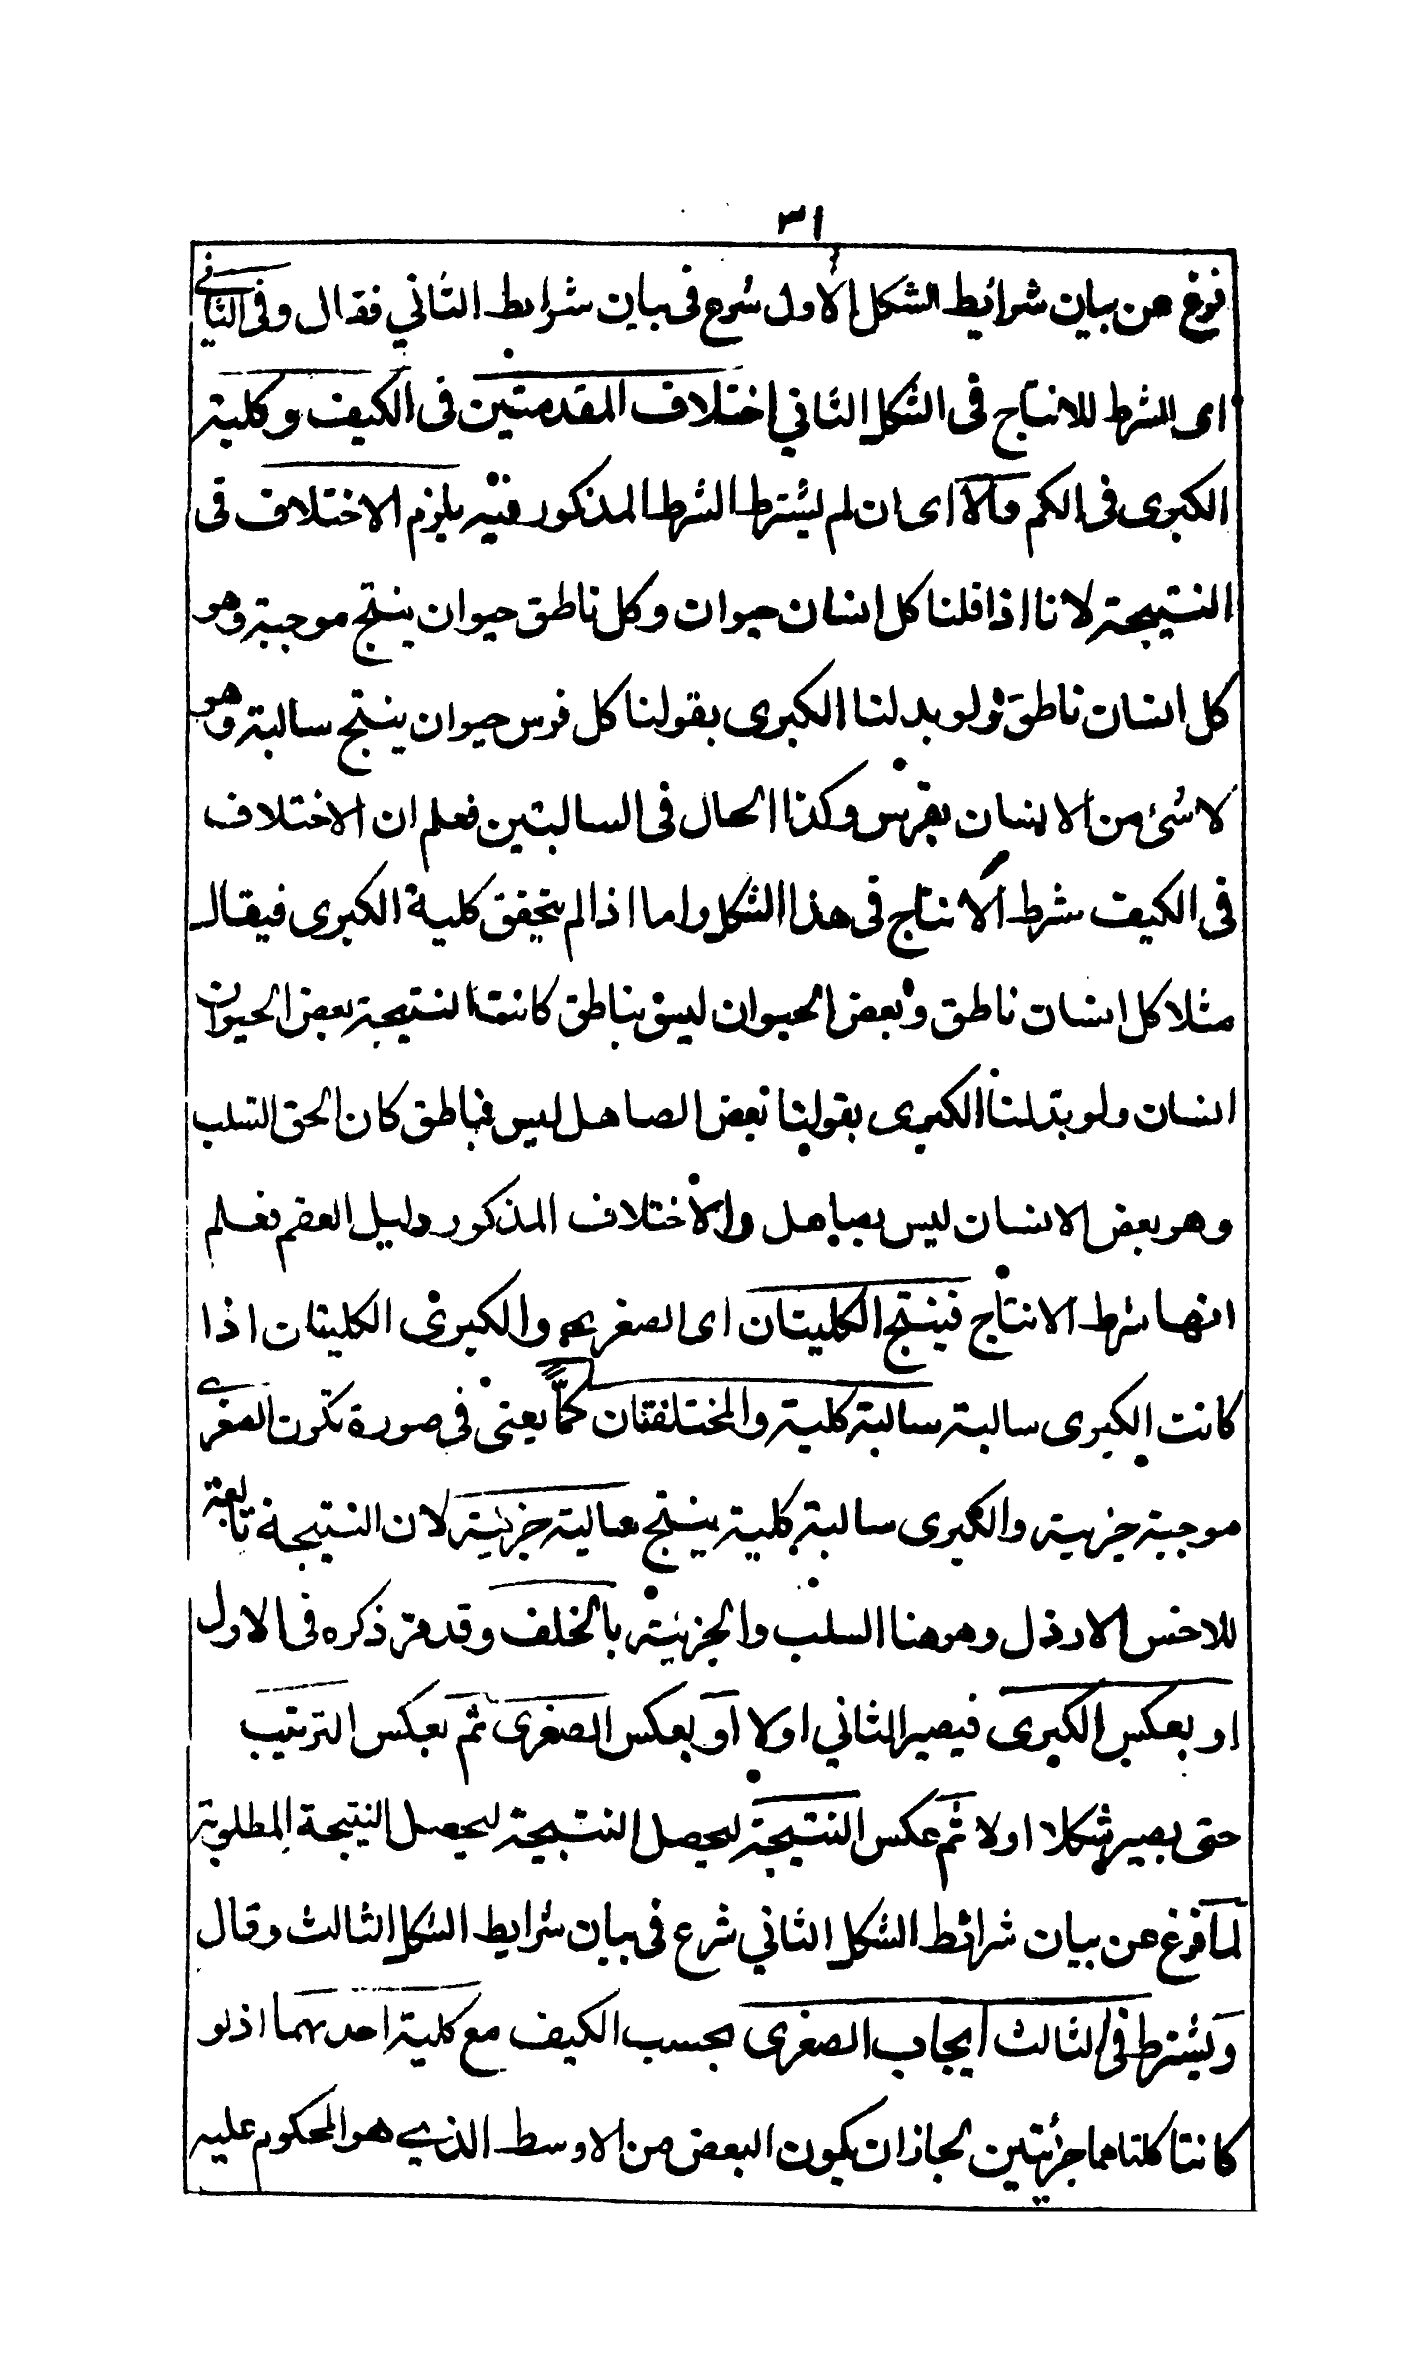 ٣١
فرغ عن بيان شرائط الشكل الاول شرع فى بيان شرايط الثاني فقال وفى الثاني
اى الشرط للانتاج فى الشكل الثاني اختلاف المقدمتين فى الكيف وكلية
الكبرى فى الكم والا اى ان لم يشترط الشرط المذكور فيه يلزم الاختلاف فى
النتيجة لانا اذا قلنا كل انسان حيوان وكل ناطق حيوان ينتج موجبة وهو
كل انسان ناطق ولو بدلنا الكبرى بقولنا كل فرس حيوان ينتج سالبة وهو
لا شئ من الانسان بفرس وكذا الحال فى السالبتين فعلم ان الاختلاف
فى الكيف شرط الانتاج فى هذا الشكل واما اذا لم يتحقق كلية الكبرى فيقال
مثلا كل انسان ناطق وبعض الحيوان ليس بناطق كانت النتيجة بعض الحيوان
انسان ولو بدلنا الكبرى بقولنا بعض الصاهل ليس بناطق كان الحق السلب
وهو بعض الانسان ليس بصاهل والاختلاف المذكور دليل العقم فعلم
انها شرط الانتاج فينتج الكليتان اى الصغرى والكبرى الكليتان اذا
كانت الكبرى سالبة سالبة كلية والمختلفتان كمّا يعنى فى صورة تكون الصغرى
موجبة جزئية والكبرى سالبة كلية ينتج سالبة جزئية لان النتيجة تابعة
للاخس الارذل وهو هنا السلب والجزئية بالخلف وقد مرّ ذكره فى الاول
او بعكس الكبرى فيصير الثاني اولا او بعكس الصغرى ثم بعكس الترتيب
حتى يصير شكلا اولا ثم عكس النتيجة ليحصل النتيجة ليحصل النتيجة المطلوبة
لما فرغ عن بيان شرائط الشكل الثاني شرع فى بيان شرايط الشكل الثالث وقال
ويشترط فى الثالث ايجاب الصغرى بحسب الكيف مع كلية احدهما اذ لو
كانتا كلتاهما جزئيتين لجاز ان يكون البعض من الاوسط الذي هو المحكوم عليه